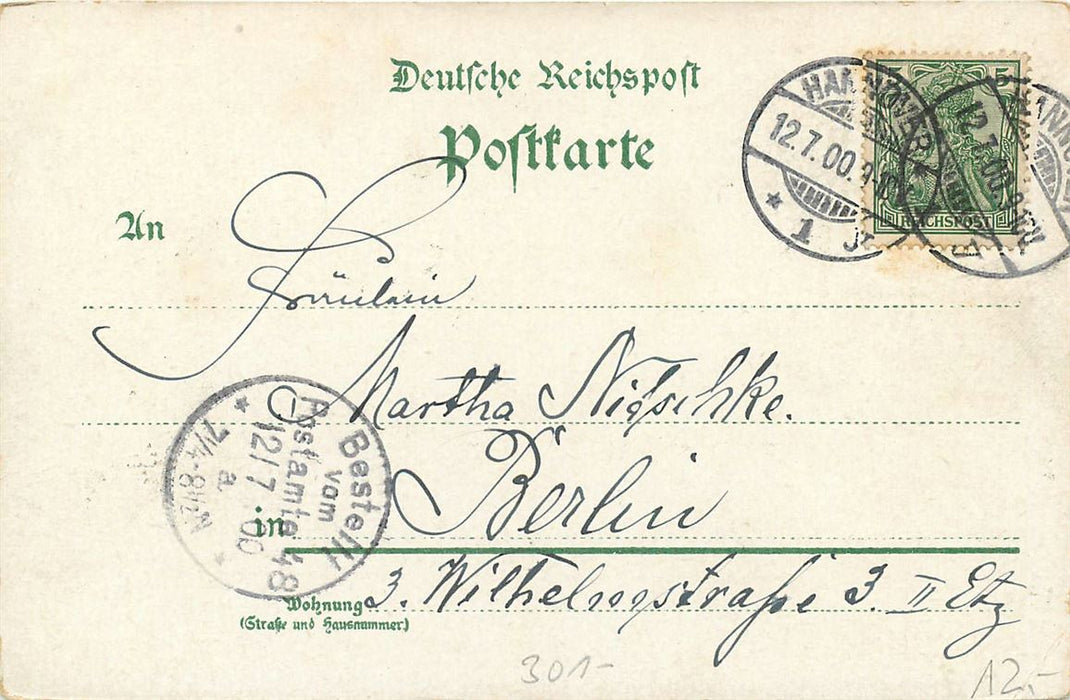 Deutsche Reichspost
Postkarte
An
Fräulein
Martha Nitschke.
in Berlin
Wohnung 3. Wilhelmstraße 3. II Etg
(Straße und Hausnummer)
HANNOVER
12.7.00.
* 1
5
REICHSPOST
12.7.00.
Bestellt
vom
Postamte 48
12/7 00
a.
7¼-8½N
301-
12,-